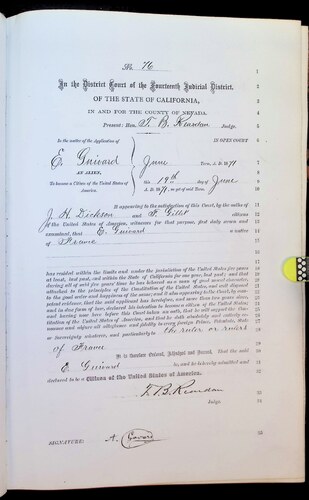 No. 76
In the District Court of the Fourteenth Judicial District,
OF THE STATE OF CALIFORNIA,
IN AND FOR THE COUNTY OF NEVADA.
Present: Hon. T. B. Reardan Judge.
In the matter of the Application of
E. Guivard
AN ALIEN,
To become a Citizen of the United States of America.
IN OPEN COURT
June Term, A. D. 1871
this 19th day of June
A. D. 1871, in said Term.
It appearing to the satisfaction of this Court, by the oaths of
J. H. Dickson and F. Gillet citizens
of the United States of America, witnesses for that purpose, first duly sworn and
examined, that E. Guivard a native
of France
has resided within the limits and under the jurisdiction of the United States five years
at least, last past, and within the State of California for one year, last past; and that
during all of said five years' time he has behaved as a man of good moral character,
attached to the principles of the Constitution of the United States, and well disposed
to the good order and happiness of the same; and it also appearing to the Court, by com-
petent evidence, that the said applicant has heretofore, and more than two years since,
and in due form of law, declared his intention to become a citizen of the United States;
and having now here before this Court taken an oath, that he will support the Con-
stitution of the United States of America, and that he doth absolutely and entirely re-
nounce and abjure all allegiance and fidelity to every foreign Prince, Potentate, State
or Sovereignty whatever, and particularly to the ruler or rulers
of France
It is therefore Ordered, Adjudged and Decreed, That the said
E. Guivard be, and he hereby admitted and
declared to be a Citizen of the United States of America.
T. B. Reardan
Judge.
SIGNATURE: A.
1
2
3
4
5
6
7
8
9
10
11
12
13
14
15
16
17
18
19
20
21
22
23
24
25
26
27
28
29
30
31
32
33
34
35